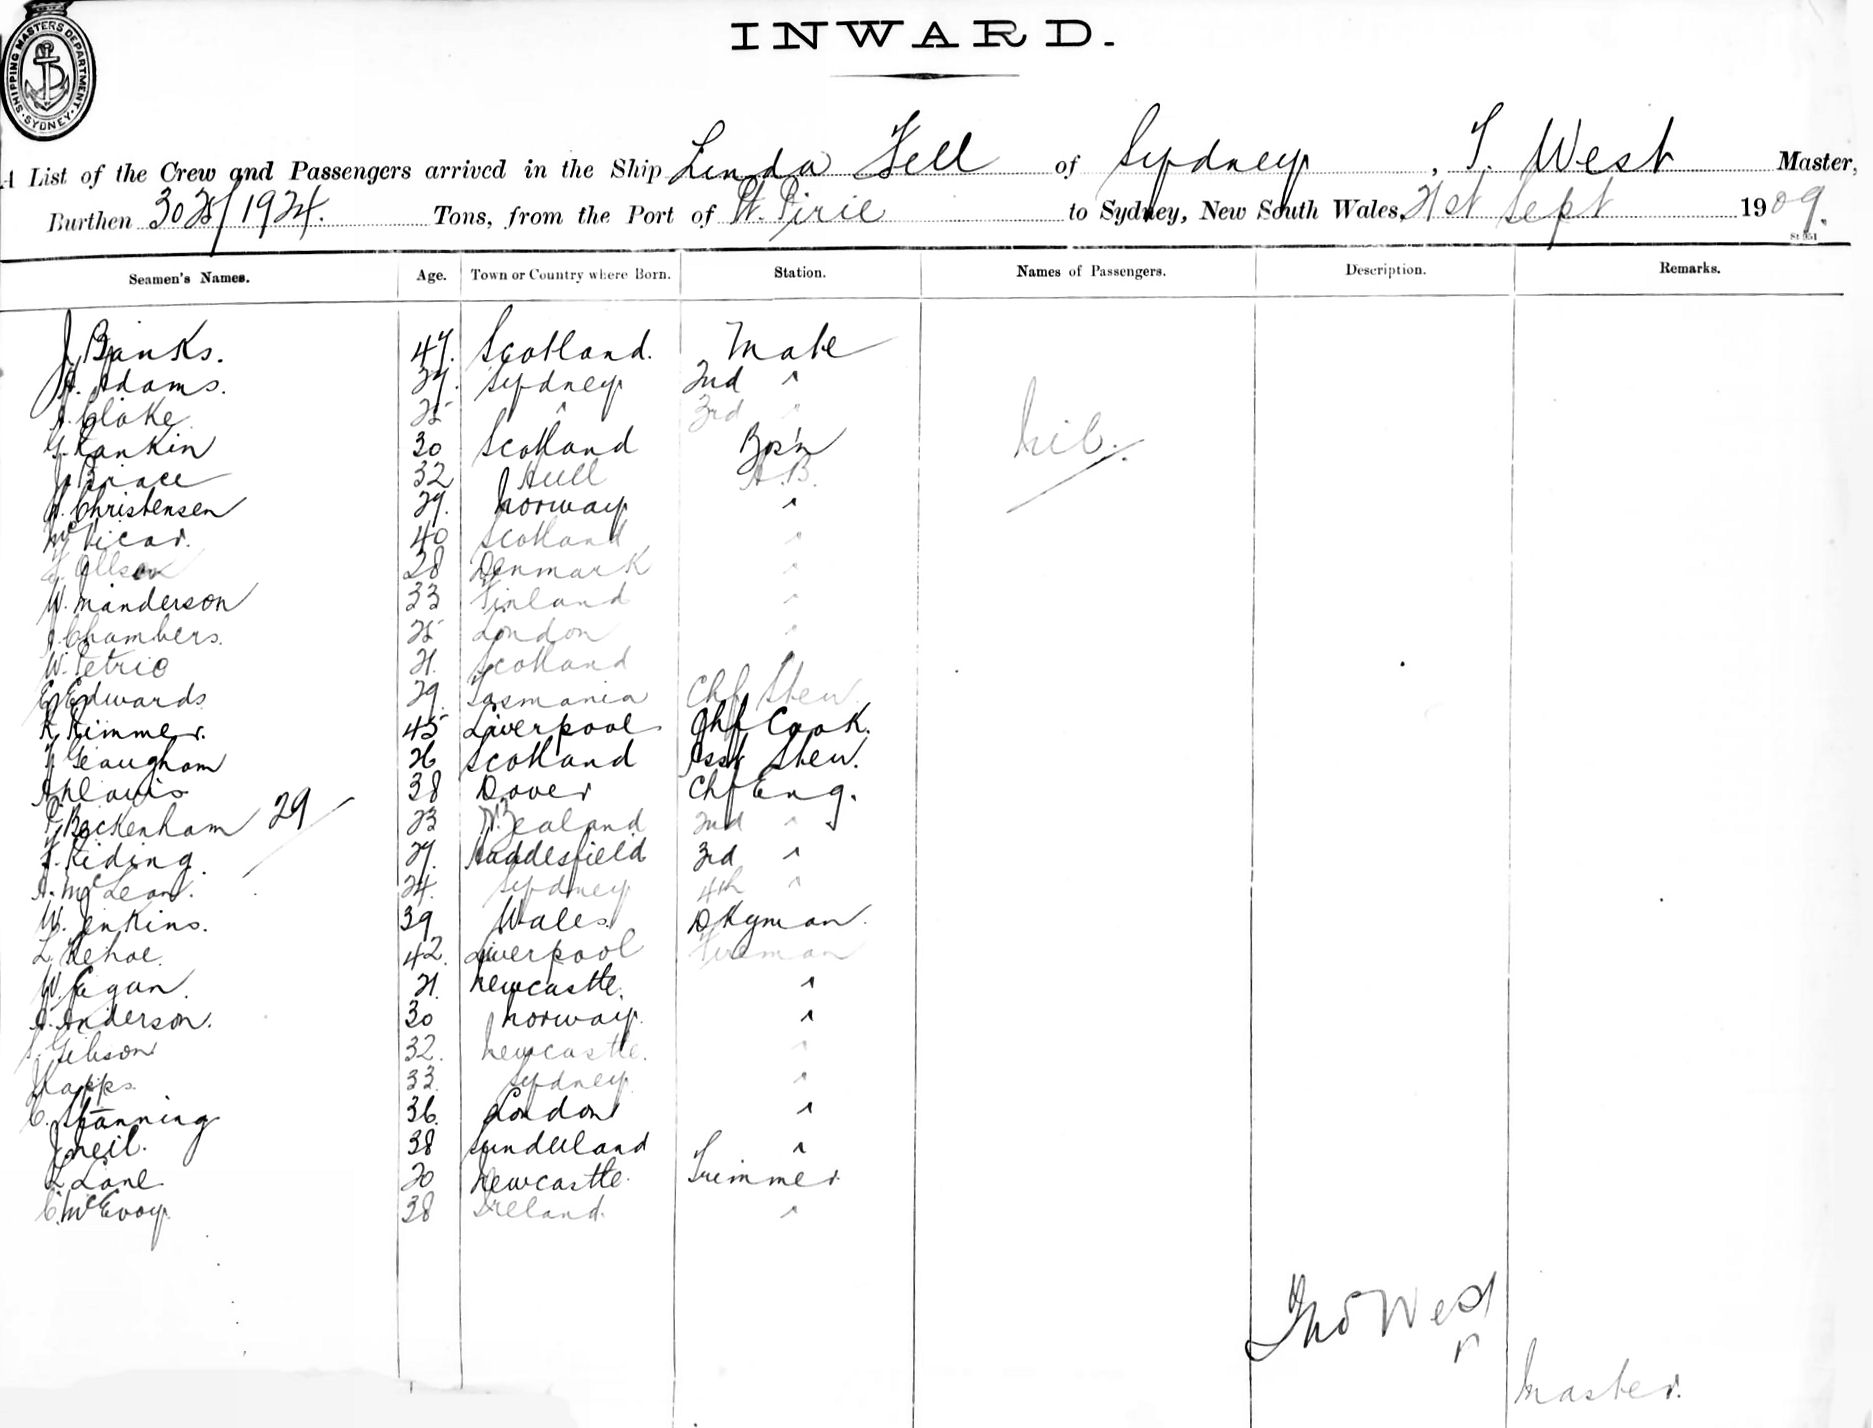 SHIPPING MASTERS DEPARTMENT · SYDNEY ·
INWARD.
A List of the Crew and Passengers arrived in the Ship Linda Fell of Sydney, T. West Master,
Burthen 3025/1924. Tons, from the Port of Pt. Pirie to Sydney, New South Wales, 21st Sept 1909.
Seamen's Names. Age. Town or Country where Born. Station. Names of Passengers. Description. Remarks.
J Banks. 47. Scotland. Mate
A. Adams. 27. Sydney 2nd "
A. Cloke 25 " 3rd "
G. Rankin 30 Scotland Bos'n
J Brace 32 Hull A.B. Nil.
A. Christensen 29. Norway "
McVicar. 40 Scotland "
28 Denmark "
W. Manderson 33 Finland "
A. Chambers. 25 London "
W. Petrie 21. Scotland
E Edwards 29. Tasmania Chf Stew
R. Rimmer. 45 Liverpool Chf Cook.
T. Geaugham 26 Scotland Asst Stew.
A Lewis 38 Dover Chf Eng.
F. Beckenham 29 23 N. Zealand 2nd "
F. Riding. 27. Huddesfield 3rd "
A. McLean. 24. Sydney 4th "
W. Jenkins. 39 Wales. Dkyman.
L. Kehoe. 42. Liverpool Fireman
W. Egan. 21. Newcastle. "
A. Anderson. 30 Norway. "
Gibson 32. Newcastle. "
Kapps. 33. Sydney "
C. Stanning 36. London "
J Neil. 38 Sunderland "
L Lane 20 Newcastle. Trimmer
C. McEvoy. 38 Ireland. "
Thos West
Master.